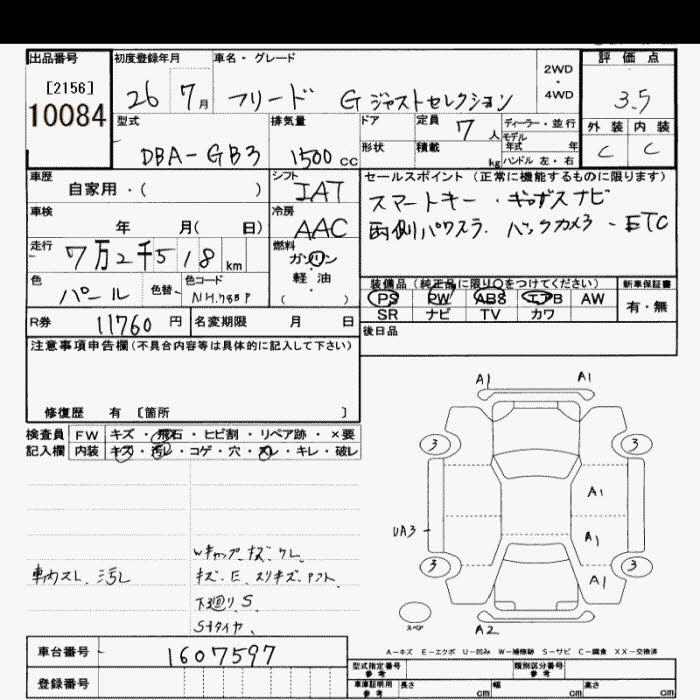 出品番号
[2156]
10084
初度登録年月
26 7月
車名・グレード
フリード G ジャストセレクション
2WD
・
4WD
評価点
3.5
外装 内装
C C
型式
DBA-GB3
排気量
1500cc
ドア
形状
定員 7人
積載 kg
ディーラー・並行
モデル
年式 年
ハンドル 左・右
車歴
自家用・( )
シフト
IAT
車検
年 月( 日)
冷房
AAC
走行
7万2千518km
燃料
ガソリン
軽油
( )
色
パール
色替
色コード
NH788P
セールスポイント(正常に機能するものに限ります)
スマートキー・ギャザズナビ
両側パワスラ. バックカメラ・ETC
装備品(純正品に限り○をつけてください)
PS PW ABS エアB AW
SR ナビ TV カワ
新車保証書
有・無
R券 11760円
名変期限 月 日
後日品
注意事項申告欄(不具合内容等は具体的に記入して下さい)
修復歴 有 〔箇所 〕
検査員
記入欄
FW キズ・飛石・ヒビ割・リペア跡・×要
内装 キズ・汚レ・コゲ・穴・スレ・キレ・破レ
車内スレ. 汚レ
Wキャップ. キズ. ワレ
キズ. E. スリキズ. タフト.
下廻リ S
Sタイヤ.
A1 A1
3 3
A1
UA3 A1
3 A1 3
スペア
A2
A-キズ E-エクボ U-凹み W-補修跡 S-サビ C-腐食 XX-交換済
車台番号
1607597
登録番号
型式指定番号
参考
類別区分番号
参考
車庫証明用
参考
長さ cm
幅 cm
高さ cm